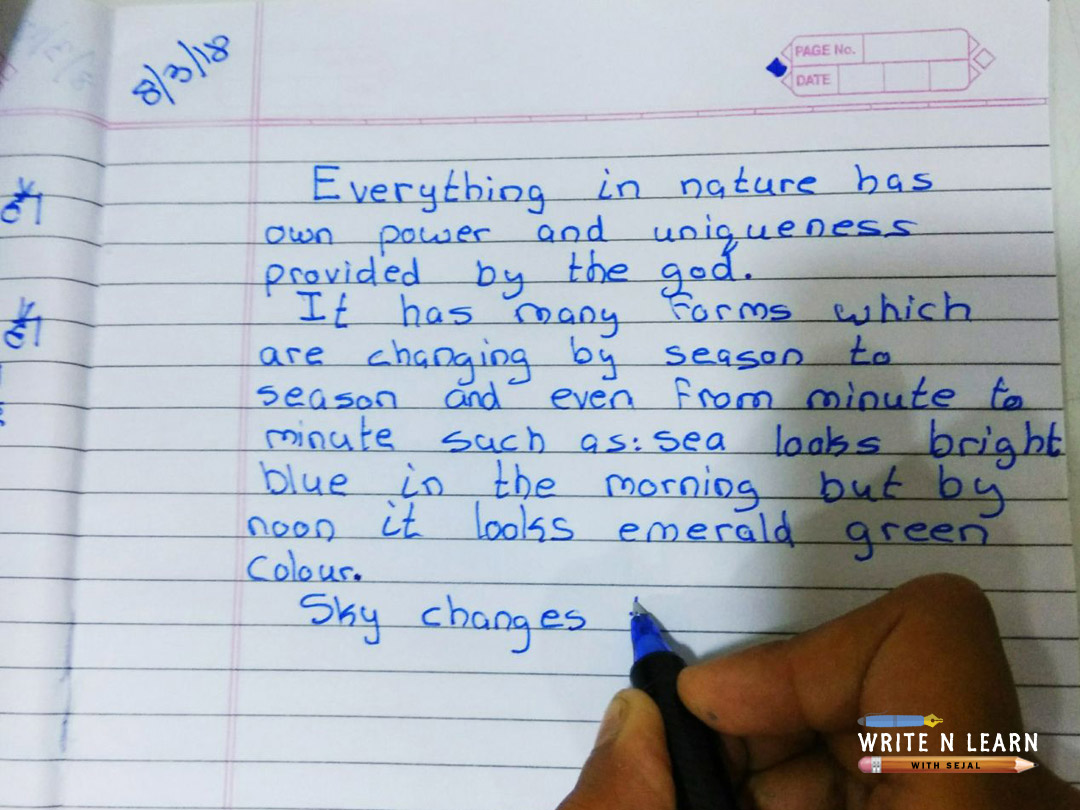 8/3/18
PAGE No.
DATE
Everything in nature has
own power and uniqueness
provided by the god.
It has many forms which
are changing by season to
season and even from minute to
minute such as: sea looks bright
blue in the morning but by
noon it looks emerald green
colour.
Sky changes
WRITE N LEARN
WITH SEJAL